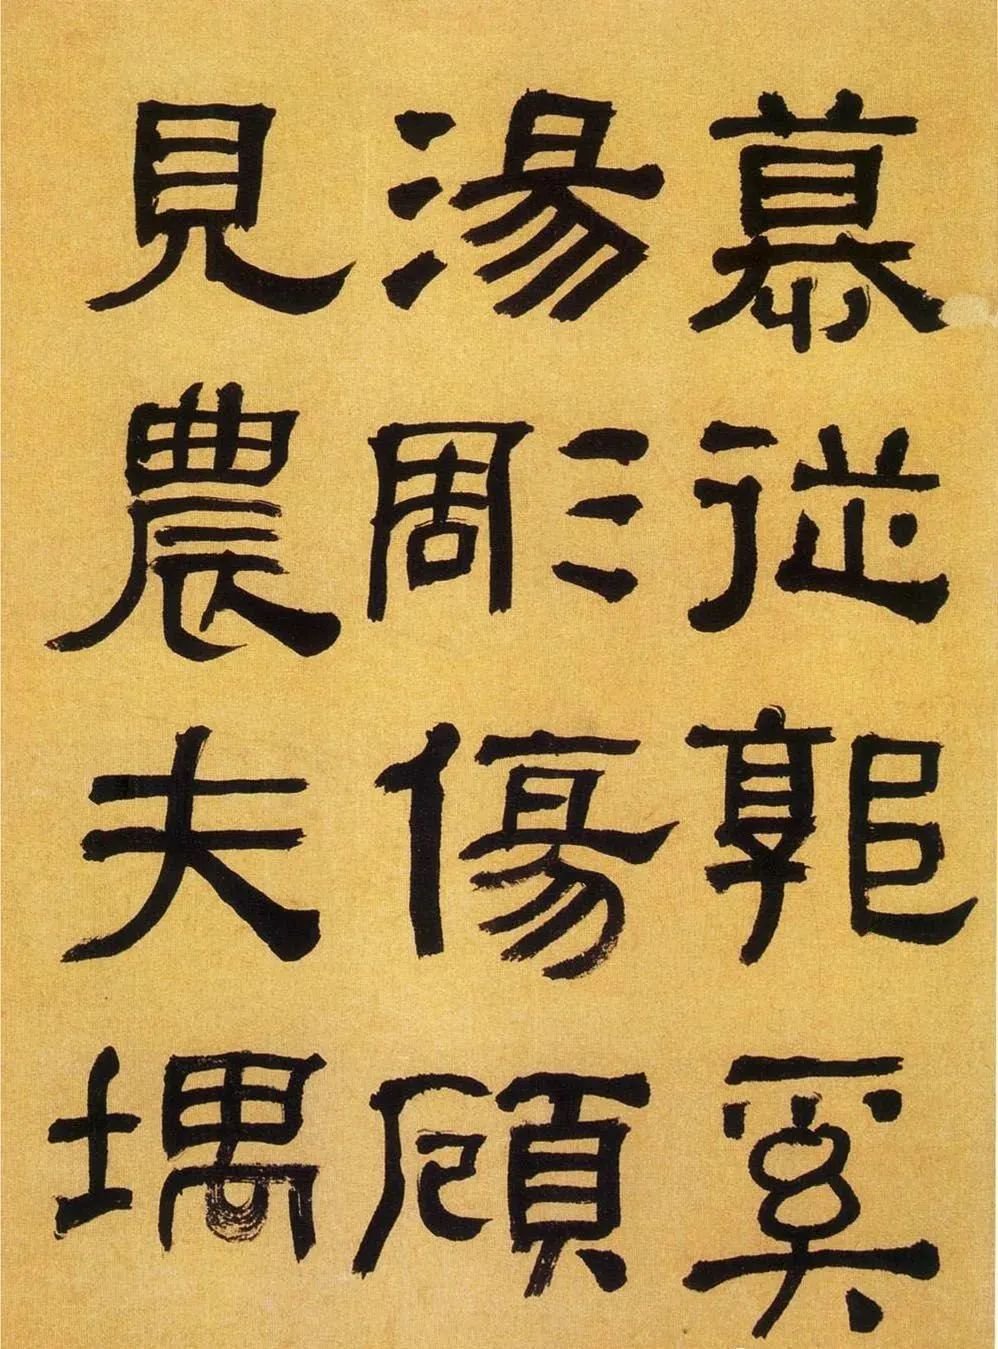 慕從郭奚
湯彫傷頋
見農夫堣